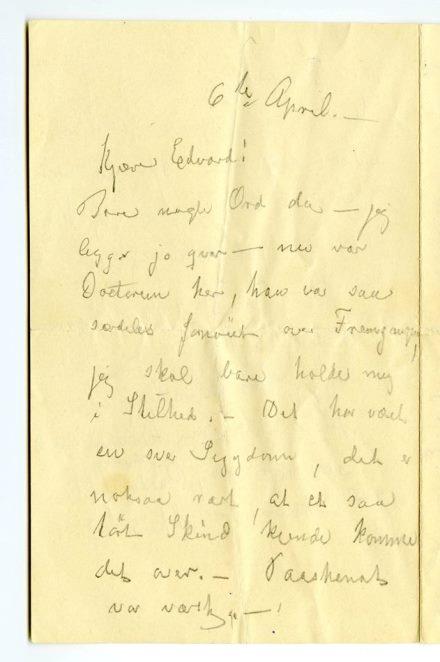 6te April. —
Kjære Edvard!
Bare nogle Ord da — jeg
ligger jo qvar — nu var
Doctoren her, han var saa
særdeles fornöiet over Fremgangen,
jeg skal bare holde mig
i Stilhed. — Det har været
en svær Sygdom, det er
noksaa rart, at et saa
tört Skind kunde komme
det over. — Paaskenat
var værst, ja — !